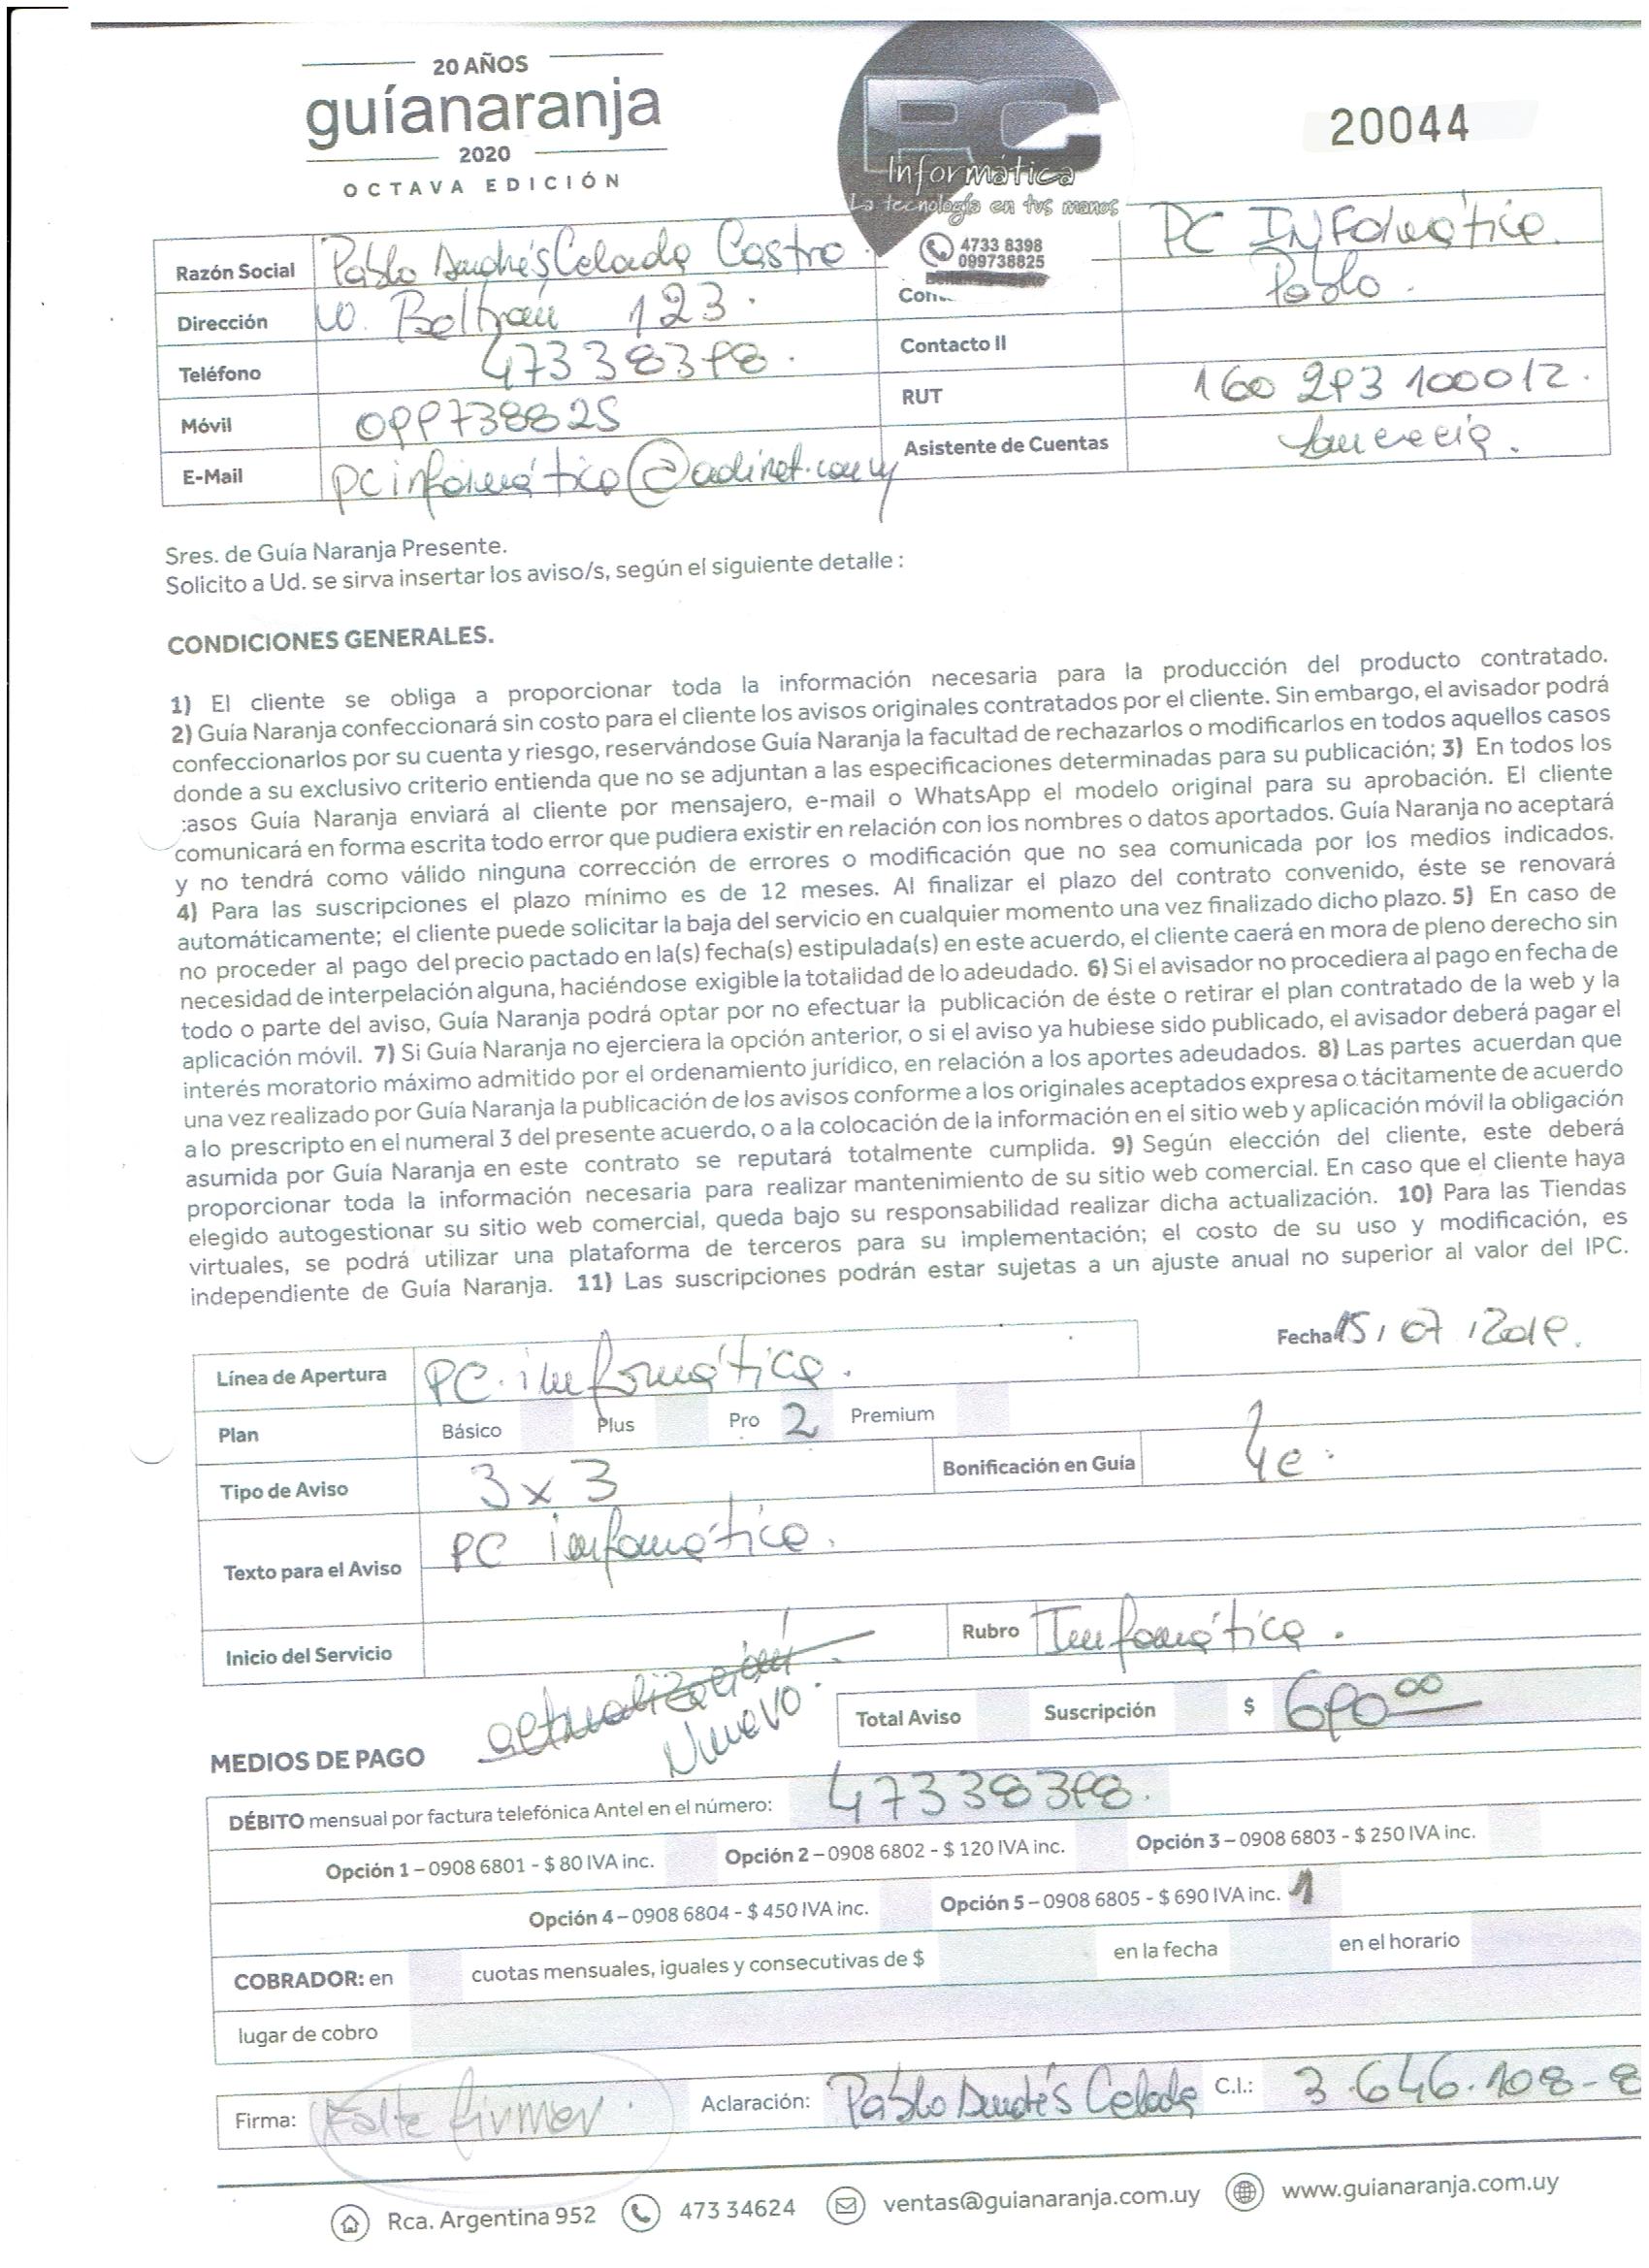 20 AÑOS
guíanaranja
2020
OCTAVA EDICIÓN
PC
Informática
La tecnología en tus manos
4733 8398
099738825
20044
Razón Social Pablo Andrés Celada Castro PC Informática.
Dirección W. Beltrán 123. Pablo.
Teléfono 47338398. Contacto II
Móvil 099738825 RUT 160 293 100012.
E-Mail pcinformática@adinet.com.uy Asistente de Cuentas
Sres. de Guía Naranja Presente.
Solicito a Ud. se sirva insertar los aviso/s, según el siguiente detalle :
CONDICIONES GENERALES.
1) El cliente se obliga a proporcionar toda la información necesaria para la producción del producto contratado.
2) Guía Naranja confeccionará sin costo para el cliente los avisos originales contratados por el cliente. Sin embargo, el avisador podrá
confeccionarlos por su cuenta y riesgo, reservándose Guía Naranja la facultad de rechazarlos o modificarlos en todos aquellos casos
donde a su exclusivo criterio entienda que no se adjuntan a las especificaciones determinadas para su publicación; 3) En todos los
casos Guía Naranja enviará al cliente por mensajero, e-mail o WhatsApp el modelo original para su aprobación. El cliente
comunicará en forma escrita todo error que pudiera existir en relación con los nombres o datos aportados. Guía Naranja no aceptará
y no tendrá como válido ninguna corrección de errores o modificación que no sea comunicada por los medios indicados.
4) Para las suscripciones el plazo mínimo es de 12 meses. Al finalizar el plazo del contrato convenido, éste se renovará
automáticamente; el cliente puede solicitar la baja del servicio en cualquier momento una vez finalizado dicho plazo. 5) En caso de
no proceder al pago del precio pactado en la(s) fecha(s) estipulada(s) en este acuerdo, el cliente caerá en mora de pleno derecho sin
necesidad de interpelación alguna, haciéndose exigible la totalidad de lo adeudado. 6) Si el avisador no procediera al pago en fecha de
todo o parte del aviso, Guía Naranja podrá optar por no efectuar la publicación de éste o retirar el plan contratado de la web y la
aplicación móvil. 7) Si Guía Naranja no ejerciera la opción anterior, o si el aviso ya hubiese sido publicado, el avisador deberá pagar el
interés moratorio máximo admitido por el ordenamiento jurídico, en relación a los aportes adeudados. 8) Las partes acuerdan que
una vez realizado por Guía Naranja la publicación de los avisos conforme a los originales aceptados expresa o tácitamente de acuerdo
a lo prescripto en el numeral 3 del presente acuerdo, o a la colocación de la información en el sitio web y aplicación móvil la obligación
asumida por Guía Naranja en este contrato se reputará totalmente cumplida. 9) Según elección del cliente, este deberá
proporcionar toda la información necesaria para realizar mantenimiento de su sitio web comercial. En caso que el cliente haya
elegido autogestionar su sitio web comercial, queda bajo su responsabilidad realizar dicha actualización. 10) Para las Tiendas
virtuales, se podrá utilizar una plataforma de terceros para su implementación; el costo de su uso y modificación, es
independiente de Guía Naranja. 11) Las suscripciones podrán estar sujetas a un ajuste anual no superior al valor del IPC.
Fecha 15/07/2019.
Línea de Apertura PC. informática.
Plan Básico Plus Pro 2 Premium
Tipo de Aviso 3x3 Bonificación en Guía
Texto para el Aviso PC informática.
Inicio del Servicio Rubro Informática.
actualización
Nuevo.
Total Aviso Suscripción $ 690 00
MEDIOS DE PAGO
DÉBITO mensual por factura telefónica Antel en el número: 47338398.
Opción 1 – 0908 6801 - $ 80 IVA inc. Opción 2 – 0908 6802 - $ 120 IVA inc. Opción 3 – 0908 6803 - $ 250 IVA inc.
Opción 4 – 0908 6804 - $ 450 IVA inc. Opción 5 – 0908 6805 - $ 690 IVA inc. 1
COBRADOR: en cuotas mensuales, iguales y consecutivas de $ en la fecha en el horario
lugar de cobro
Firma: Falta firmar. Aclaración: Pablo Andrés Celada C.I.: 3.646.108-8
Rca. Argentina 952 473 34624 ventas@guianaranja.com.uy www.guianaranja.com.uy